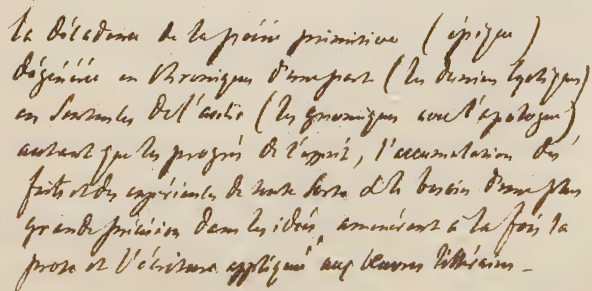 la décadence de la poésie primitive (épique)
dégénérée en chroniques d'une part (les derniers cycliques)
en Sentences de l'autre (les gnomiques avec l'apologue)
autant que les progrès de l'esprit, l'accumulation des
faits et des expériences de toute Sorte & le besoin d'une plus
grande précision dans les idées, amenèrent à la fois la
prose et l'écriture appliquée aux œuvres littéraires_